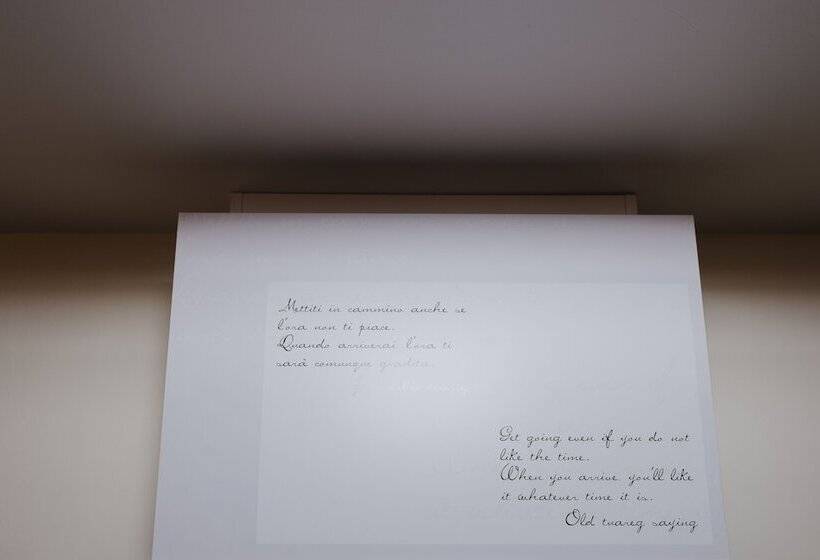 Mettiti in cammino anche se
l'ora non ti piace.
Quando arriverai l'ora ti
sarà comunque gradita.
Get going even if you do not
like the time.
When you arrive you'll like
it whatever time it is.
Old tuareg saying